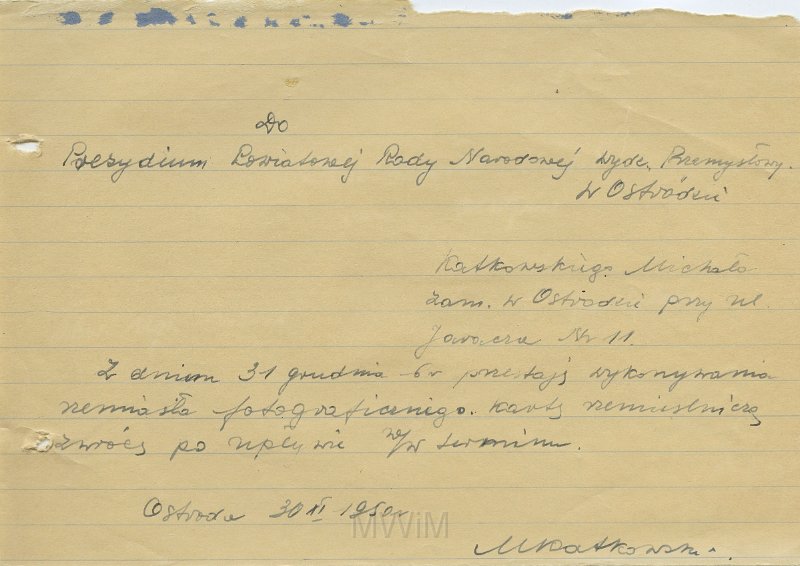 Do
Prezydium Powiatowej Rady Narodowej wydz. Przemysłowy.
w Ostródzie
Katkowskiego Michała
zam. w Ostródzie przy ul.
Jaracza Nr 11.
Z dniem 31 grudnia br przestaję wykonywania
rzemiosła fotograficznego. Kartę rzemieślniczą
zwrócę po upływie w/w terminu.
Ostróda 30 XI 1950r
MKatkowski.
MWiM